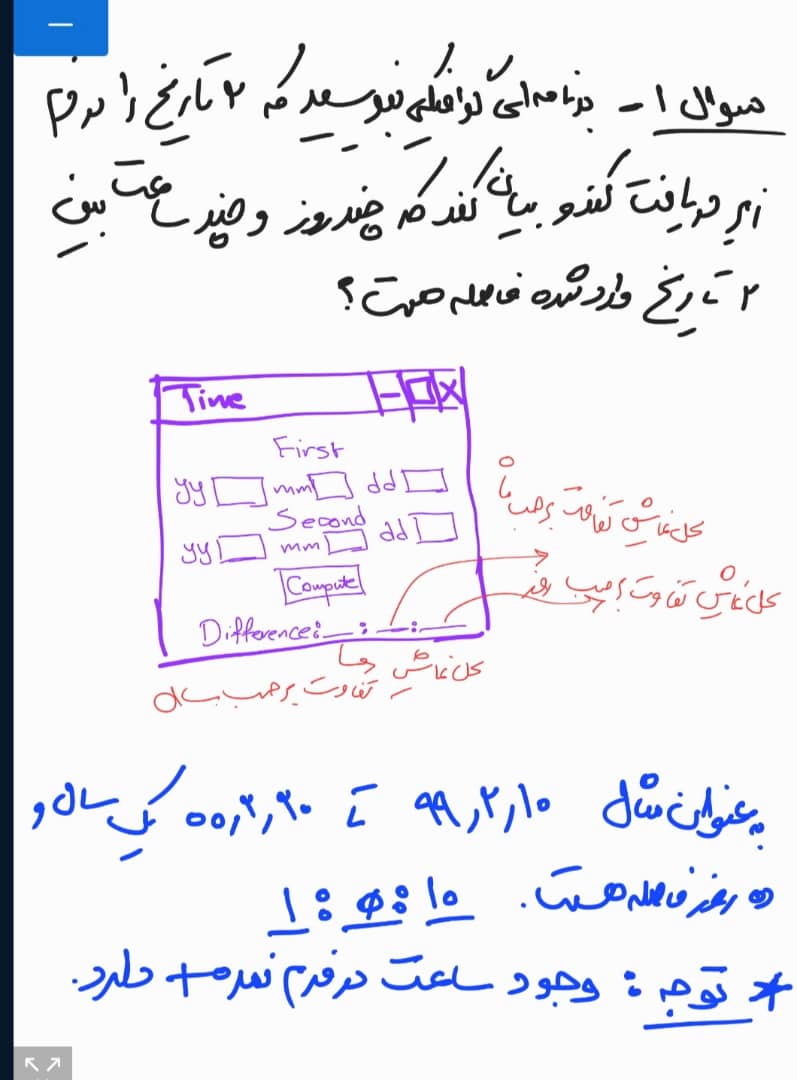 سوال ۱- برنامه‌ای گرافیکی بنویسید که ۲ تاریخ را در فرم
زیر دریافت کند و بیان کند که چند روز و چند ساعت بین
۲ تاریخ وارد شده فاصله هست؟
Time
First
yy mm dd
Second
yy mm dd
Compute
Difference: _ : _ : _
محل نمایش تفاوت برحسب ماه
محل نمایش تفاوت برحسب روز
محل نمایش
تفاوت برحسب سال
به عنوان مثال ۹۹,۲,۱۰ تا ۰۰,۲,۲۰ یک سال و
ده روز فاصله هست. ۱ : ۰ : ۱۰
* توجه : وجود ساعت در فرم نمره + دارد.